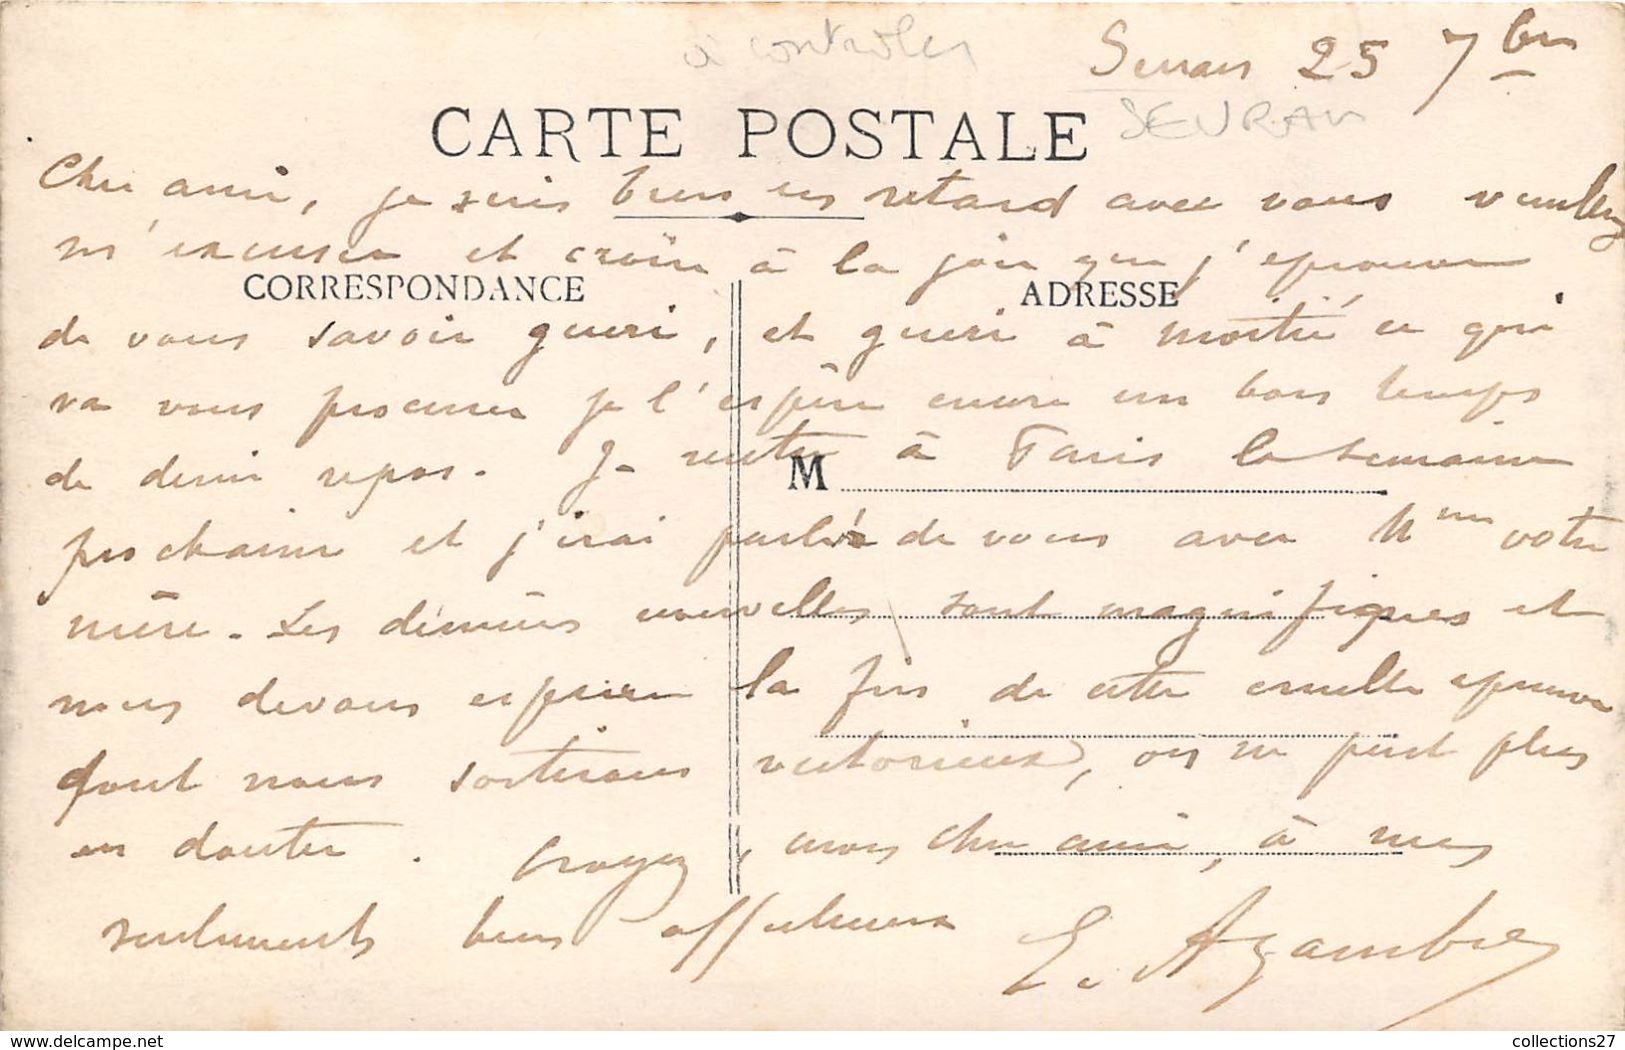 à controler
25 7bre
SEVRAN
CARTE POSTALE
Cher ami, je suis bien en retard avec vous veuillez
m'excuser et croire à la joie que j'éprouve
CORRESPONDANCE
ADRESSE
de vous savoir guéri, et guéri à moitié ce qui
va vous procurer je l'espère encore un bon temps
de demi repos. Je rentre à Paris la semaine
M
prochaine et j'irai parler de vous avec Mme votre
mère. Les dernières nouvelles sont magnifiques et
nous devons espérer la fin de cette cruelle épreuve
dont nous sortirons victorieux, on ne peut plus
en douter. Croyez, mon cher ami, à mes
sentiments bien affectueux
E. Azambre
www.delcampe.net
collections27